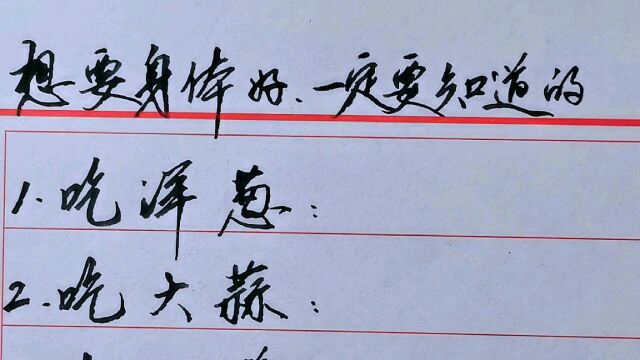 想要身体好、一定要知道的
1.吃洋葱：
2.吃大蒜：